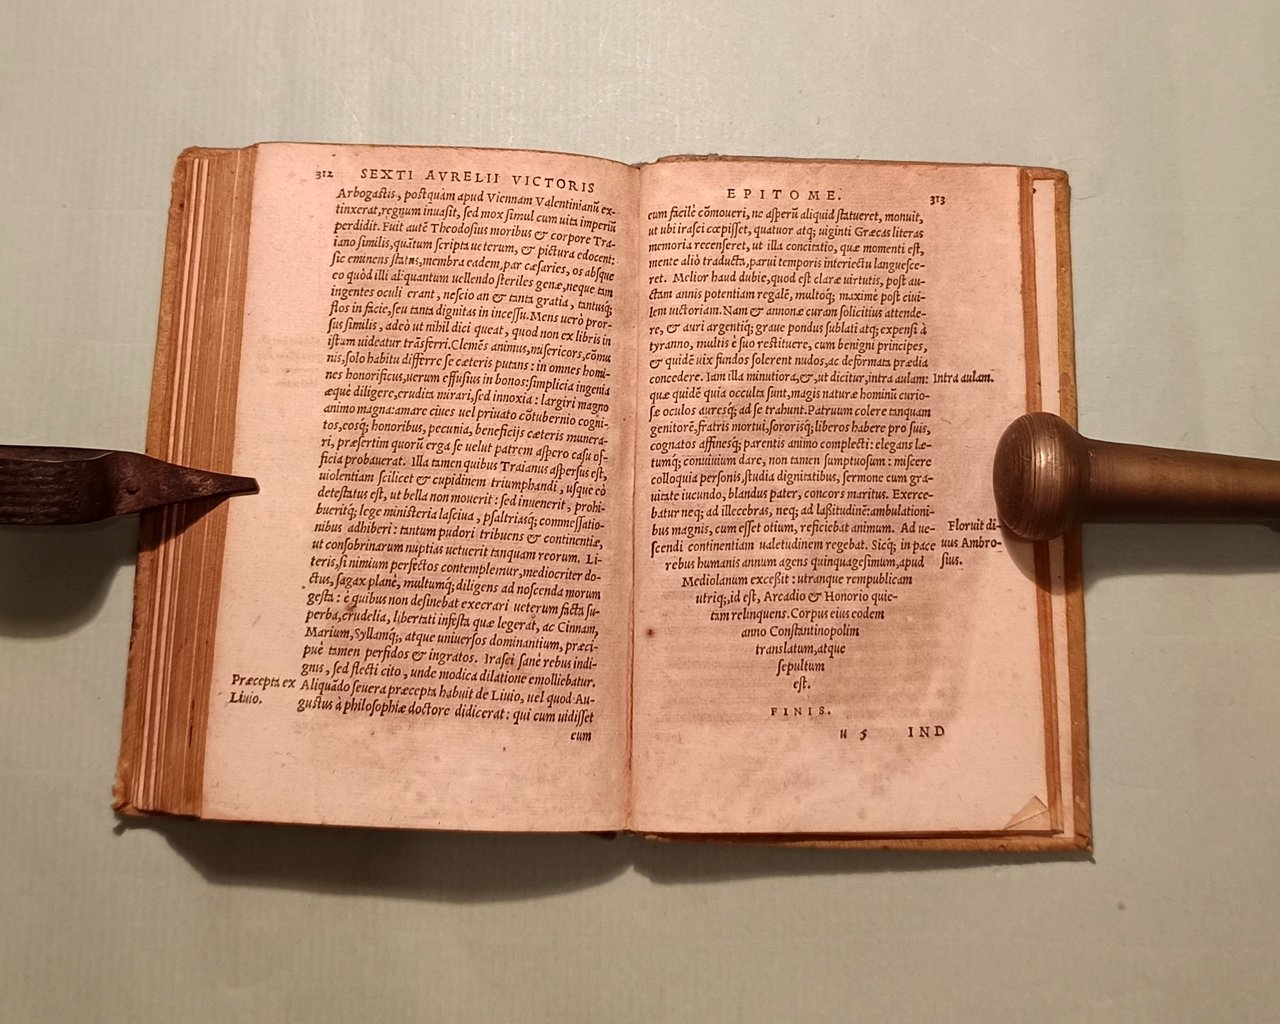 312 SEXTI AVRELII VICTORIS
Arbogastis, postquàm apud Viennam Valentinianũ ex-
tinxerat, regnum inuasit, sed mox simul cum uita imperiũ
perdidit. Fuit autē Theodosius moribus & corpore Tra-
iano similis, quãtum scripta ueterum, & pictura edocent:
sic eminens status, membra eadem, par cæsaries, os absque
eo quòd illi aliquantum uellendo steriles genæ, neque tam
ingentes oculi erant, nescio an & tanta gratia, tantusq;
flos in facie, seu tanta dignitas in incessu. Mens uerò pror-
sus similis, adeò ut nihil dici queat, quod non ex libris in
istum uideatur trãsferri. Clemēs animus, misericors, cõmu
nis, solo habitu differre se cæteris putans: in omnes homi-
nes honorificus, uerum effusius in bonos: simplicia ingenia
æquè diligere, erudita mirari, sed innoxia: largiri magno
animo magna: amare ciues uel priuato cõtubernio cogni-
tos, eosq; honoribus, pecunia, beneficijs cæteris munera-
ri, præsertim quorũ erga se uelut patrem aspero casu of-
ficia probauerat. Illa tamen quibus Traianus aspersus est,
uiolentiam scilicet & cupidinem triumphandi, usque eò
detestatus est, ut bella non mouerit: sed inuenerit, prohi-
bueritq; lege ministeria lasciua, psaltriasq; commessatio-
nibus adhiberi: tantum pudori tribuens & continentiæ,
ut consobrinarum nuptias uetuerit tanquam reorum. Li-
teris, si nimium perfectos contemplemur, mediocriter do-
ctus, sagax planè, multumq; diligens ad noscenda morum
gesta: è quibus non desinebat execrari ueterum facta su-
perba, crudelia, libertati infesta quæ legerat, ac Cinnam,
Marium, Syllamq;, atque uniuersos dominantium, præci-
puè tamen perfidos & ingratos. Irasci sanè rebus indi-
gnis, sed flecti cito, unde modica dilatione emolliebatur.
Præcepta ex Aliquãdo seuera præcepta habuit de Liuio, uel quod Au-
Liuio. gustus à philosophiæ doctore didicerat: qui cum uidisset
cum
EPITOME. 313
eum facilè cõmoueri, ne asperũ aliquid statueret, monuit,
ut ubi irasci cœpisset, quatuor atq; uiginti Græcas literas
memoria recenseret, ut illa concitatio, quæ momenti est,
mente aliò traducta, parui temporis interiectu languesce-
ret. Melior haud dubie, quod est claræ uirtutis, post au-
ctam annis potentiam regalē, multoq; maximè post ciui-
lem uictoriam. Nam & annonæ curam solicitius attende-
re, & auri argentiq; graue pondus sublati atq; expensi à
tyranno, multis è suo restituere, cum benigni principes,
& quidē uix fundos solerent nudos, ac deformata prædia
concedere. Iam illa minutiora, &, ut dicitur, intra aulam: Intra aulam.
quæ quidē quia occulta sunt, magis naturæ hominũ curio-
sæ oculos auresq; ad se trahunt. Patruum colere tanquam
genitorē, fratris mortui, sororisq; liberos habere pro suis,
cognatos affinesq; parentis animo complecti: elegans læ-
tumq; conuiuium dare, non tamen sumptuosum: miscere
colloquia personis, studia dignitatibus, sermone cum gra-
uitate iucundo, blandus pater, concors maritus. Exerce-
batur neq; ad illecebras, neq; ad lassitudinē: ambulationi-
bus magnis, cum esset otium, reficiebat animum. Ad ue- Floruit di-
scendi continentiam ualetudinem regebat. Sicq; in pace uus Ambro-
rebus humanis annum agens quinquagesimum, apud sius.
Mediolanum excessit: utranque rempublicam
utriq;, id est, Arcadio & Honorio quie-
tam relinquens. Corpus eius eodem
anno Constantinopolim
translatum, atque
sepultum
est.
FINIS.
u 5 IND